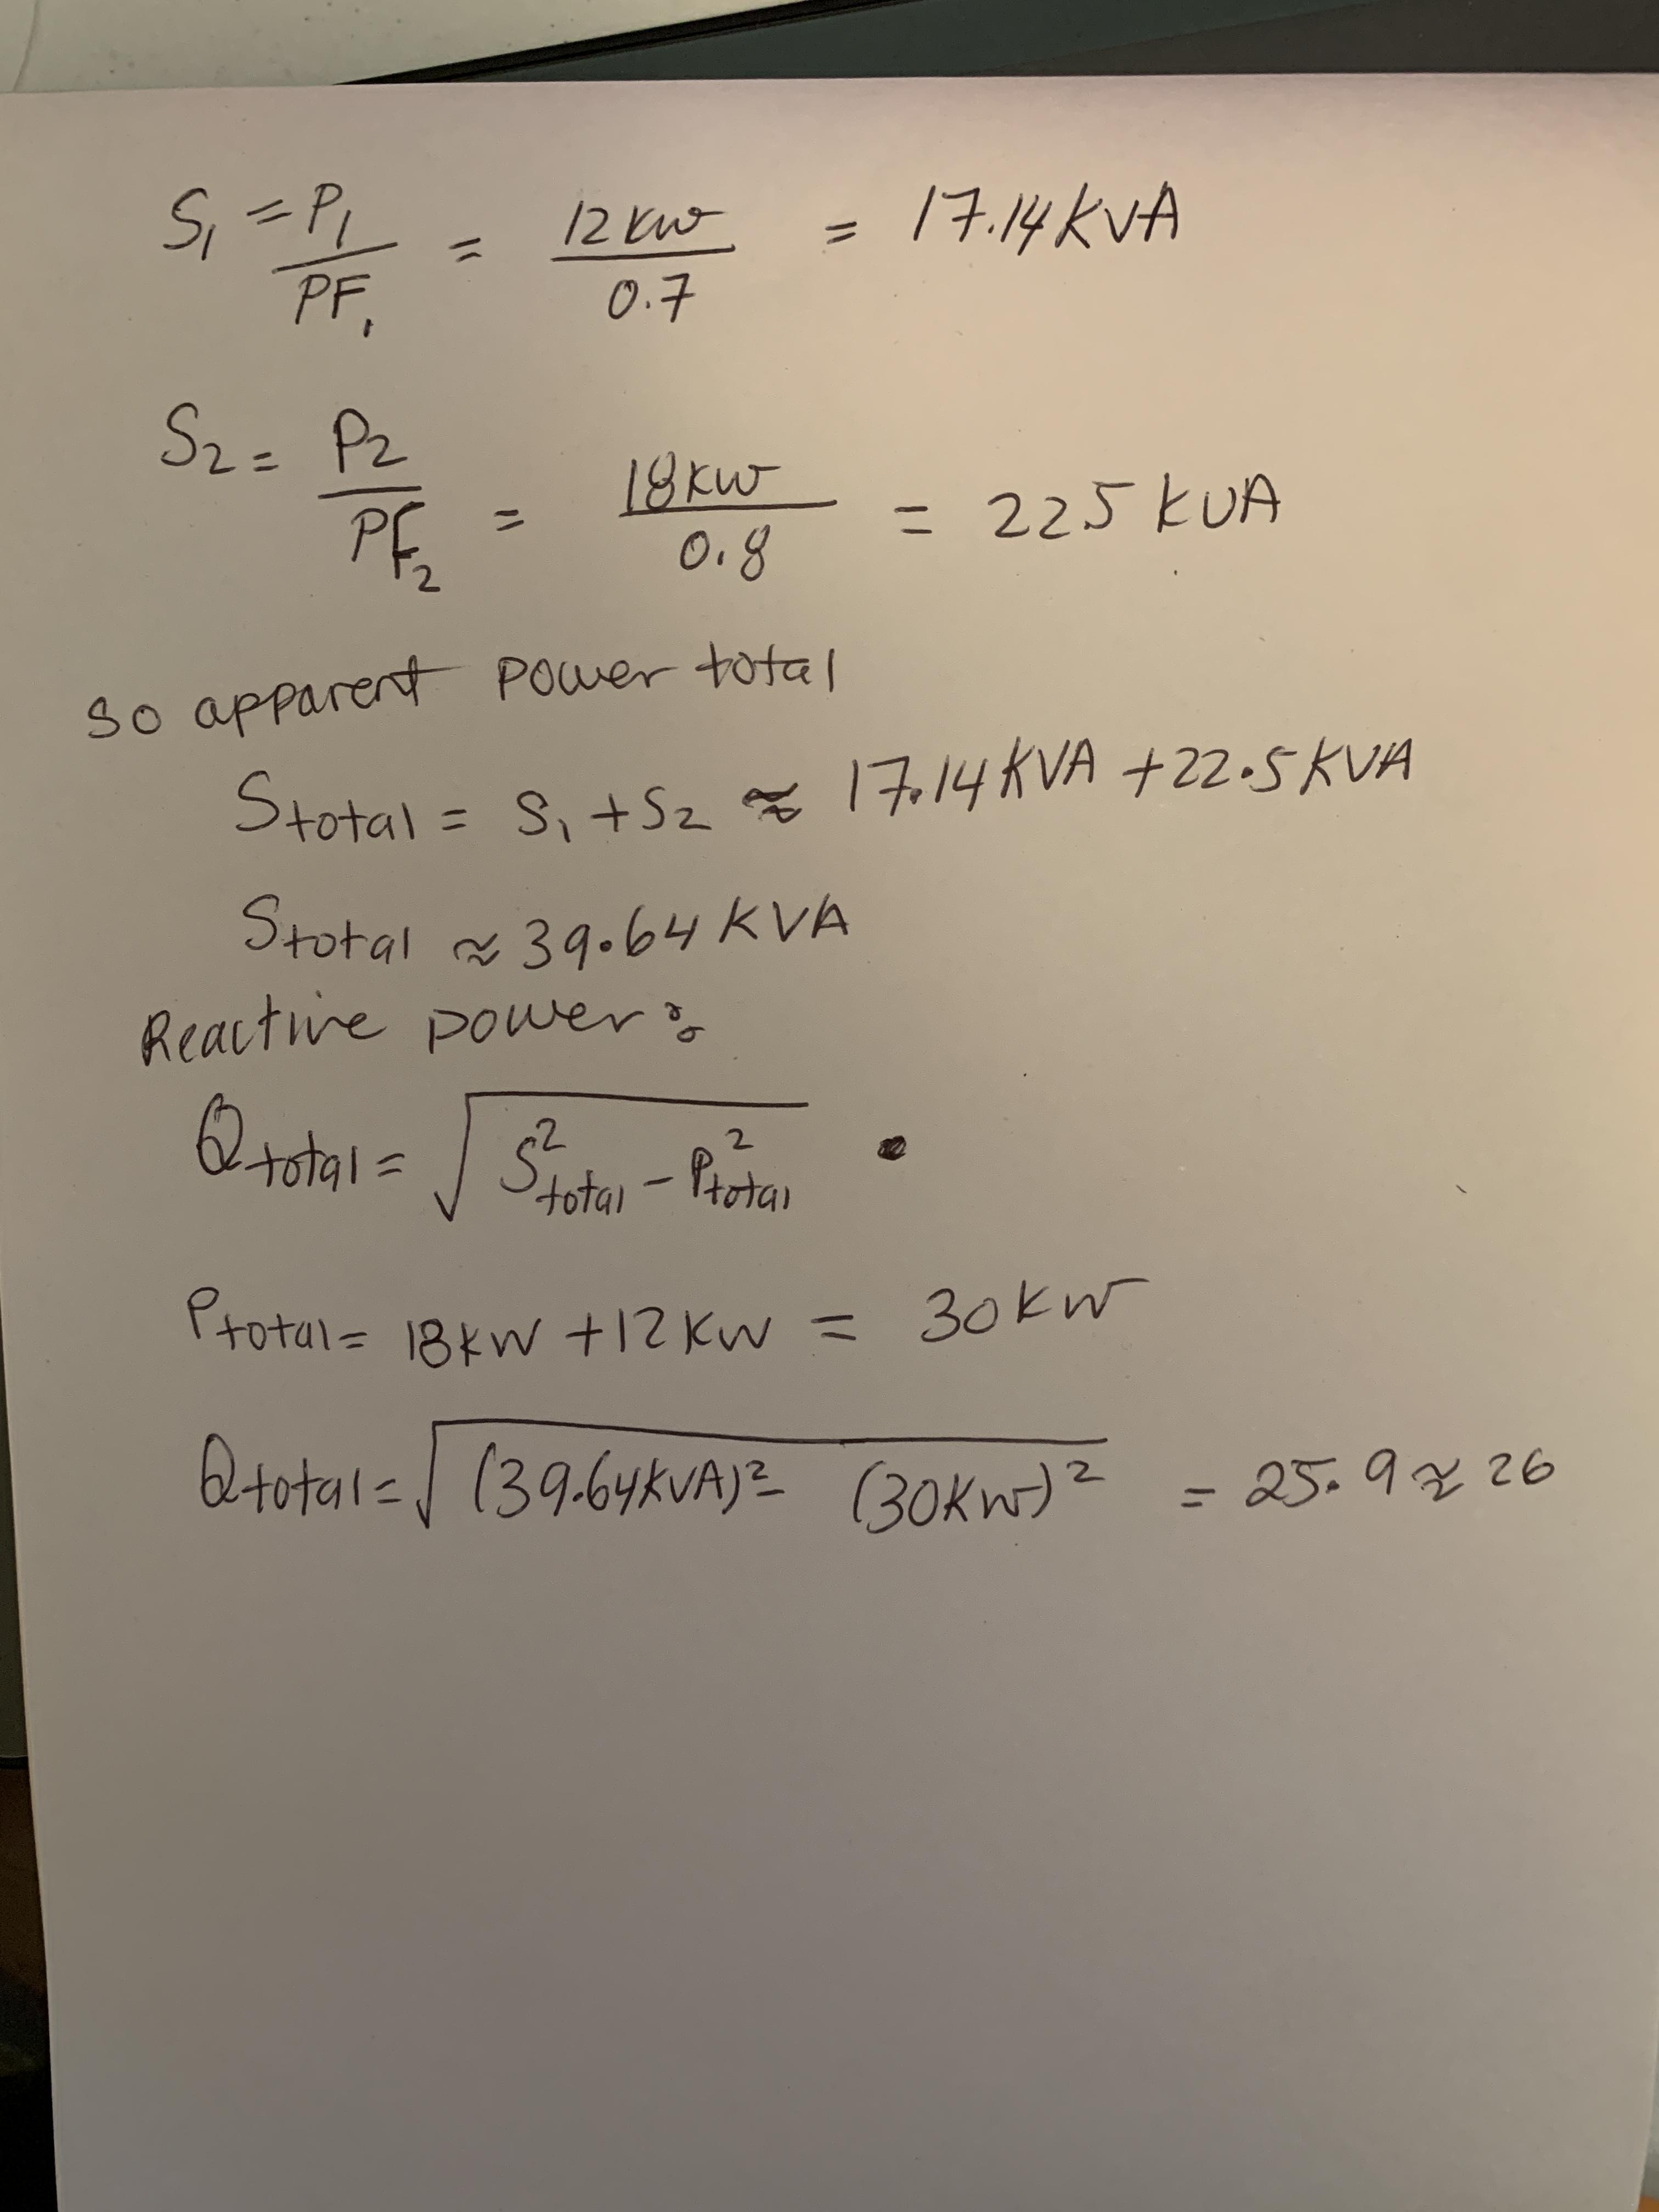 S₁ = P₁/PF₁ = 12kw/0.7 = 17.14KVA
S₂ = P₂/PF₂ = 18kw/0.8 = 225 KVA
so apparent power total
Stotal = S₁ + S₂ ≈ 17.14KVA + 22.5KVA
Stotal ≈ 39.64 KVA
Reactive power:
Qtotal = √(S²total - P²total)
Ptotal = 18kw + 12kw = 30kw
Qtotal = √((39.64KVA)² - (30kw)²) = 25.9 ≈ 26